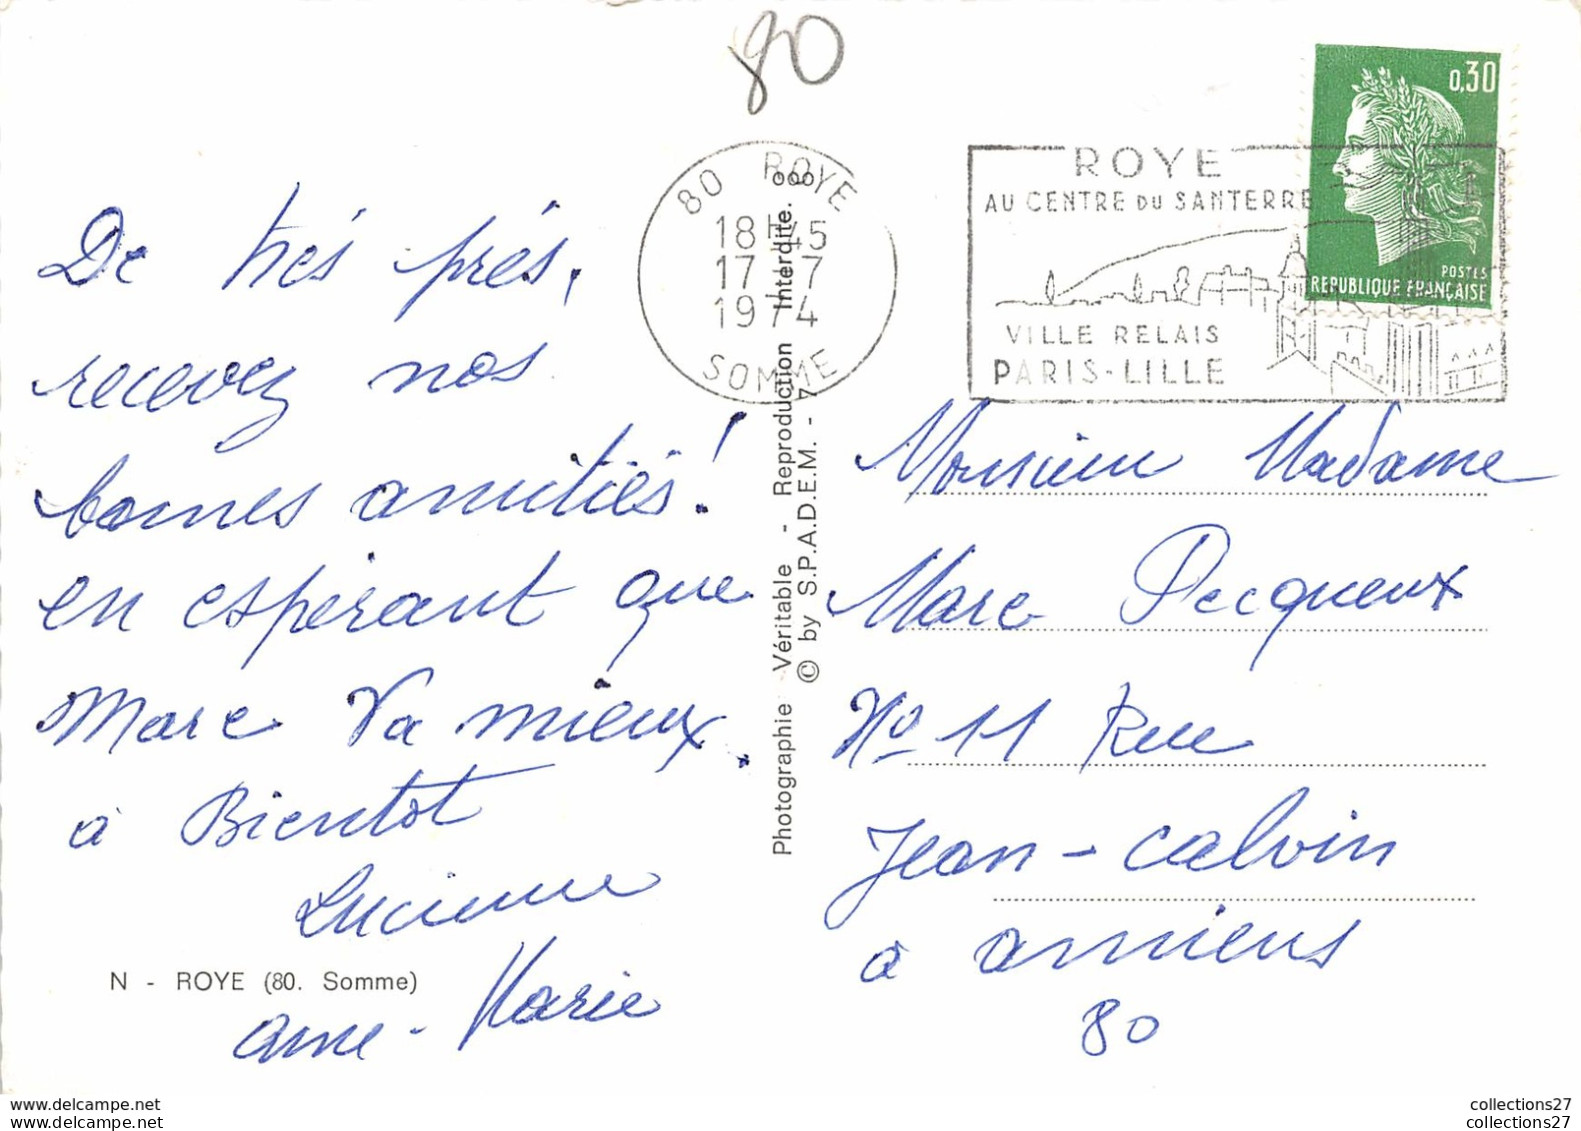 80
80 ROYE
18H45
17-7
1974
SOMME
ROYE
AU CENTRE DU SANTERRE
VILLE RELAIS
PARIS-LILLE
0,30
POSTES
REPUBLIQUE FRANÇAISE
De très près,
recevez nos
bonnes amitiés!
en espérant que
Marc Va mieux.
à Bientot
Lucienne
Anne-Marie
N - ROYE (80. Somme)
Photographie Véritable - Reproduction Interdite.
© by S.P.A.D.E.M. - 7
Monsieur Madame
Marc Pecqueux
No 11 Rue
Jean-Calvin
à Amiens
80
collections27
collections27
collections27
collections27